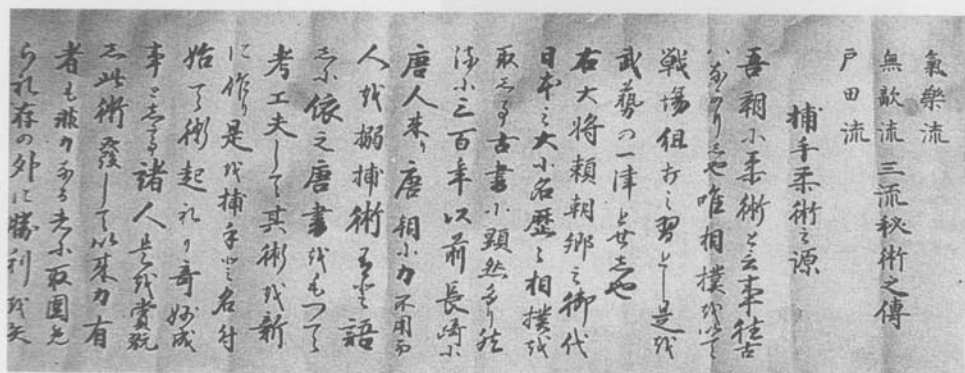 氣樂流
無敵流 三流秘術之傳
戸田流
捕手柔術之源
吾朝小柔術と云事往古
ハなかりしや唯相撲を以て
戦場組打之習とし是を
武藝の一津と世しや
右大将頼朝郷之御代
日本之大小名歴々相撲を
取しる古書小顕然多り然
法小三百年以前長崎小
唐人来り唐朝小力不用而
人を搦捕術有と語
志小依之唐書をもつて
考工夫して其術を新
に作り是を捕手と名付
始る術起れり奇妙成
事としる諸人是を賞翫
志此術發して以来力有
者も非力なる者小取圍免
られ存の外に勝利を失